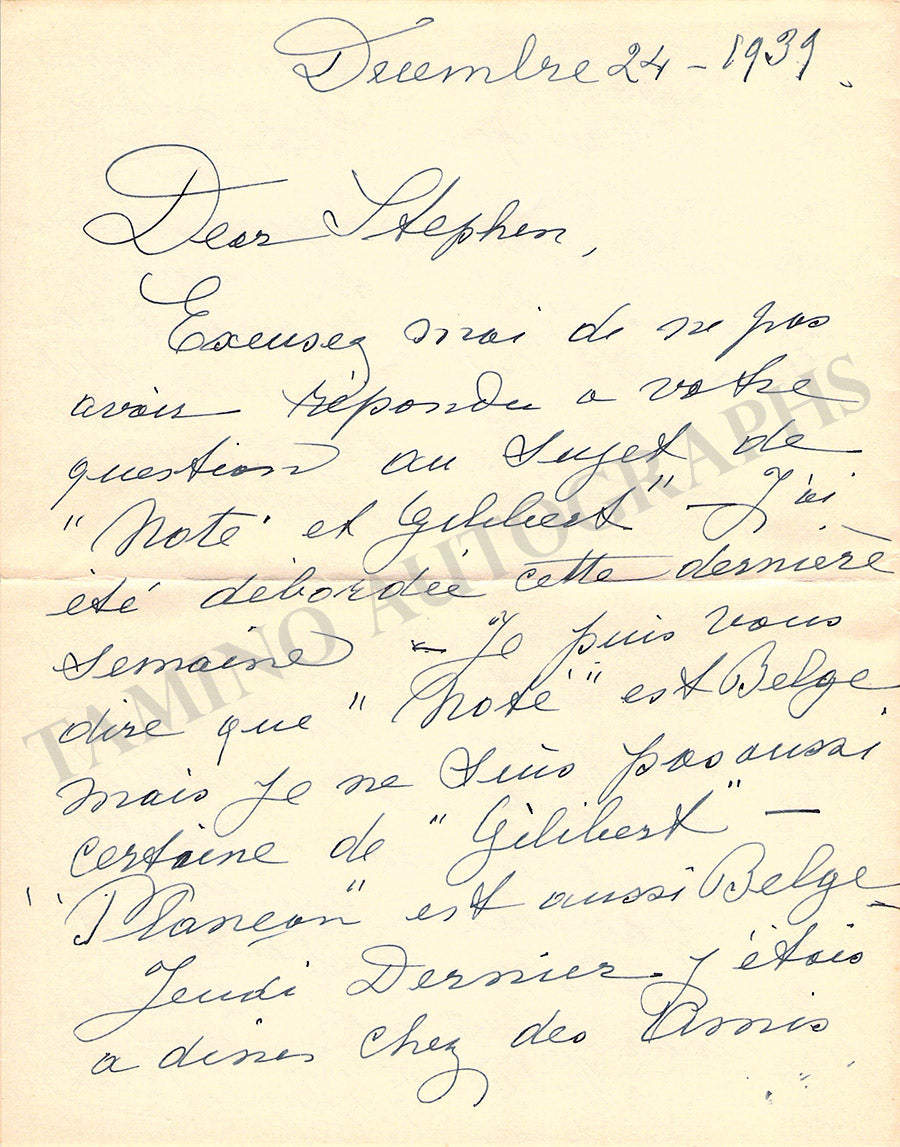 Décembre 24 - 1939.
Dear Stephen,
Excusez moi de ne pas
avoir répondu a votre
question au sujet de
"Noté et Gilibert" - J'ai
été débordée cette dernière
semaine - Je puis vous
dire que "Noté" est Belge
mais je ne suis pas aussi
certaine de "Gilibert" -
"Plancon" est aussi Belge -
Jeudi Dernier j'étais
a diner chez des Amis
TAMINO AUTOGRAPHS